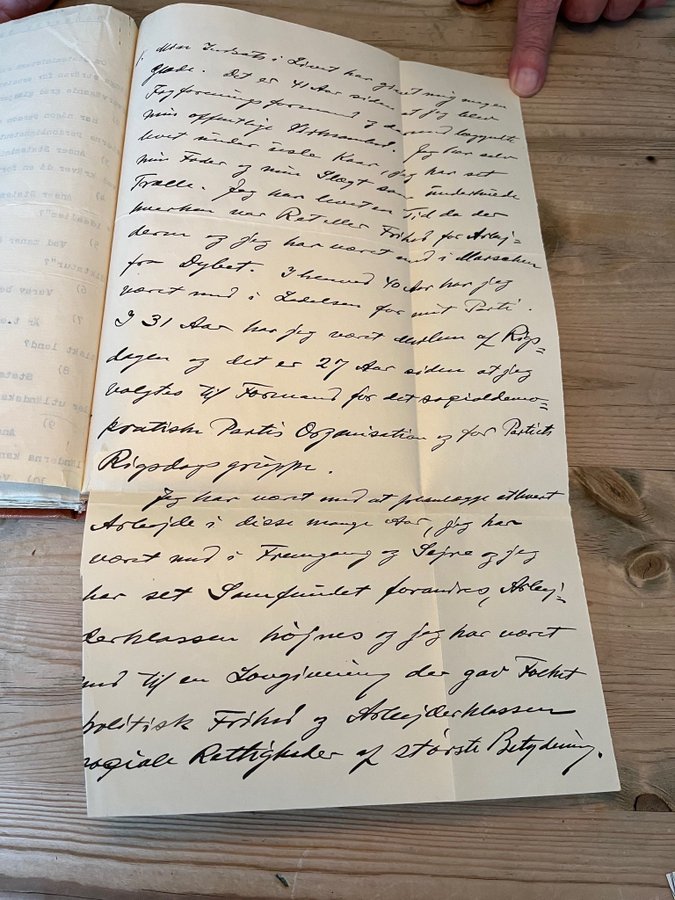 1. Min Indsats i Livet har givet mig megen
Glæde. Det er 41 Aar siden at jeg blev
Fagforeningsformand og dermed begyndte
min offentlige Virksomhed. Jeg har selv
levet under usle Kaar, jeg har set
min Fader og min Slægt som underkuede
Trælle. Jeg har levet en Tid da der
hverken var Ret eller Frihed for Arbej=
deren og jeg har været med i Marschen
fra Dybet. I henved 40 Aar har jeg
været med i Ledelsen for mit Parti.
I 31 Aar har jeg været Medlem af Rigs=
dagen og det er 27 Aar siden at jeg
valgtes til Formand for det socialdemo=
kratiske Partis Organisation og for Partiets
Rigsdagsgruppe.
Jeg har været med at planlægge ethvert
Arbejde i disse mange Aar, jeg har
været med i Fremgang og Sejre og jeg
har set Samfundet forandres, Arbej=
derklassen højnes og jeg har været
med til en Lovgivning der gav Folket
politisk Frihed og Arbejderklassen
sociale Rettigheder af største Betydning.